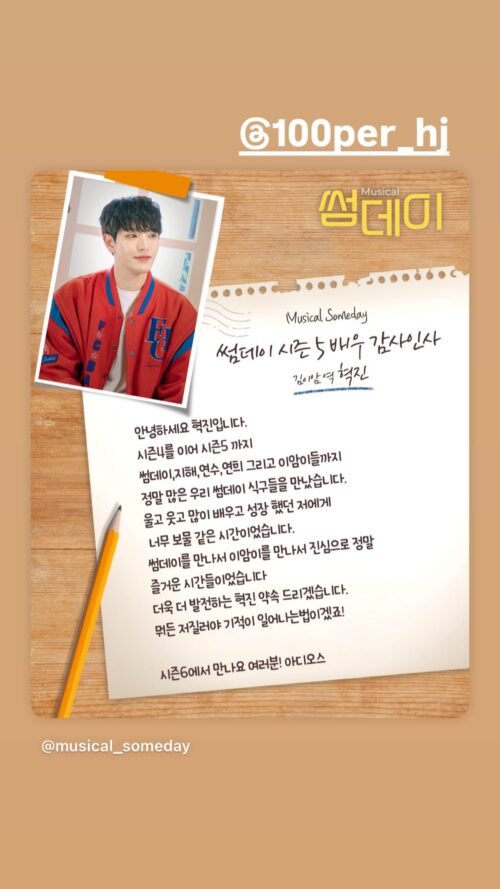 @100per_hj
Musical
썸데이
Musical Someday
썸데이 시즌 5 배우 감사인사
김이암 역 혁진
안녕하세요 혁진입니다.
시즌4를 이어 시즌5 까지
썸데이,지혜,연수,연희 그리고 이암이들까지
정말 많은 우리 썸데이 식구들을 만났습니다.
울고 웃고 많이 배우고 성장 했던 저에게
너무 보물 같은 시간이었습니다.
썸데이를 만나서 이암이를 만나서 진심으로 정말
즐거운 시간들이었습니다
더욱 더 발전하는 혁진 약속 드리겠습니다.
뭐든 저질러야 기적이 일어나는법이겠죠!
시즌6에서 만나요 여러분! 아디오스
@musical_someday